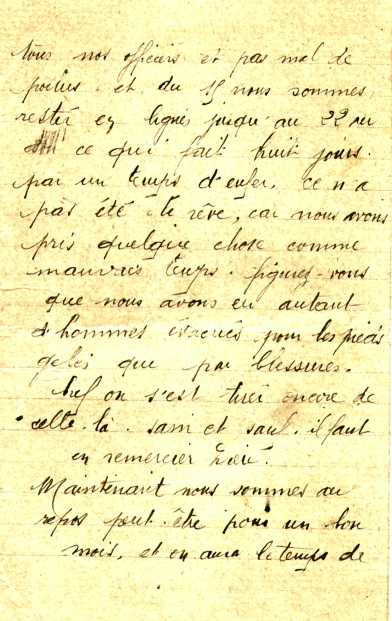 tous nos officiers et pas mal de
poilus. et du 15 nous sommes
resté en lignes jusqu'au 22 au
ce qui fait huit jours.
par un temps d'enfer, ce n'a
pas été le rêve, car nous avons
pris quelque chose comme
mauvais temps. figurez-vous
que nous avons eu autant
d'hommes évacués pour les pieds
gelés que par blessures.
Bref on s'est tiré encore de
celle-là. sain et sauf. il faut
en remercier Dieu.
Maintenant nous sommes au
repos peut-être pour un bon
mois, et on aura le temps de